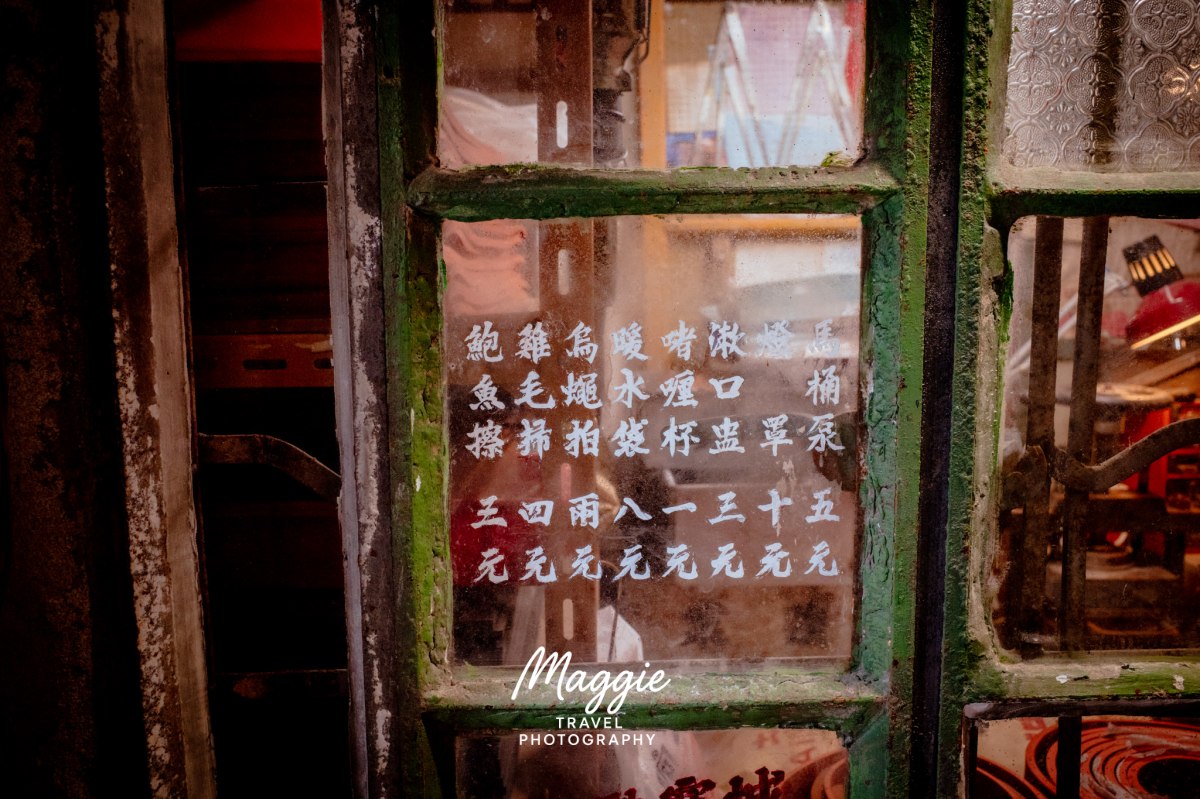 馬桶泵 五元
燈罩 十元
漱口盅 三元
啫喱杯 一元
暖水袋 八元
烏蠅拍 兩元
雞毛掃 四元
鮑魚擦 三元
Maggie
TRAVEL
PHOTOGRAPHY